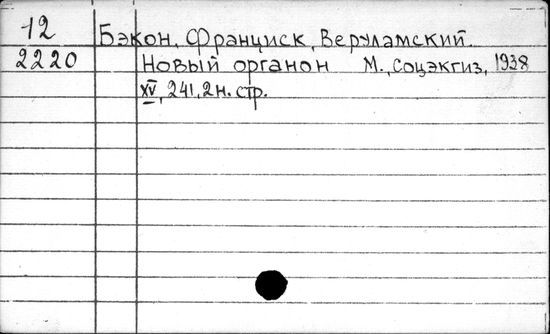 12 Бэкон, Франциск, Веруламский.
2220 Новый органон М., Соцэкгиз, 1938
XV, 241, 2 н. стр.